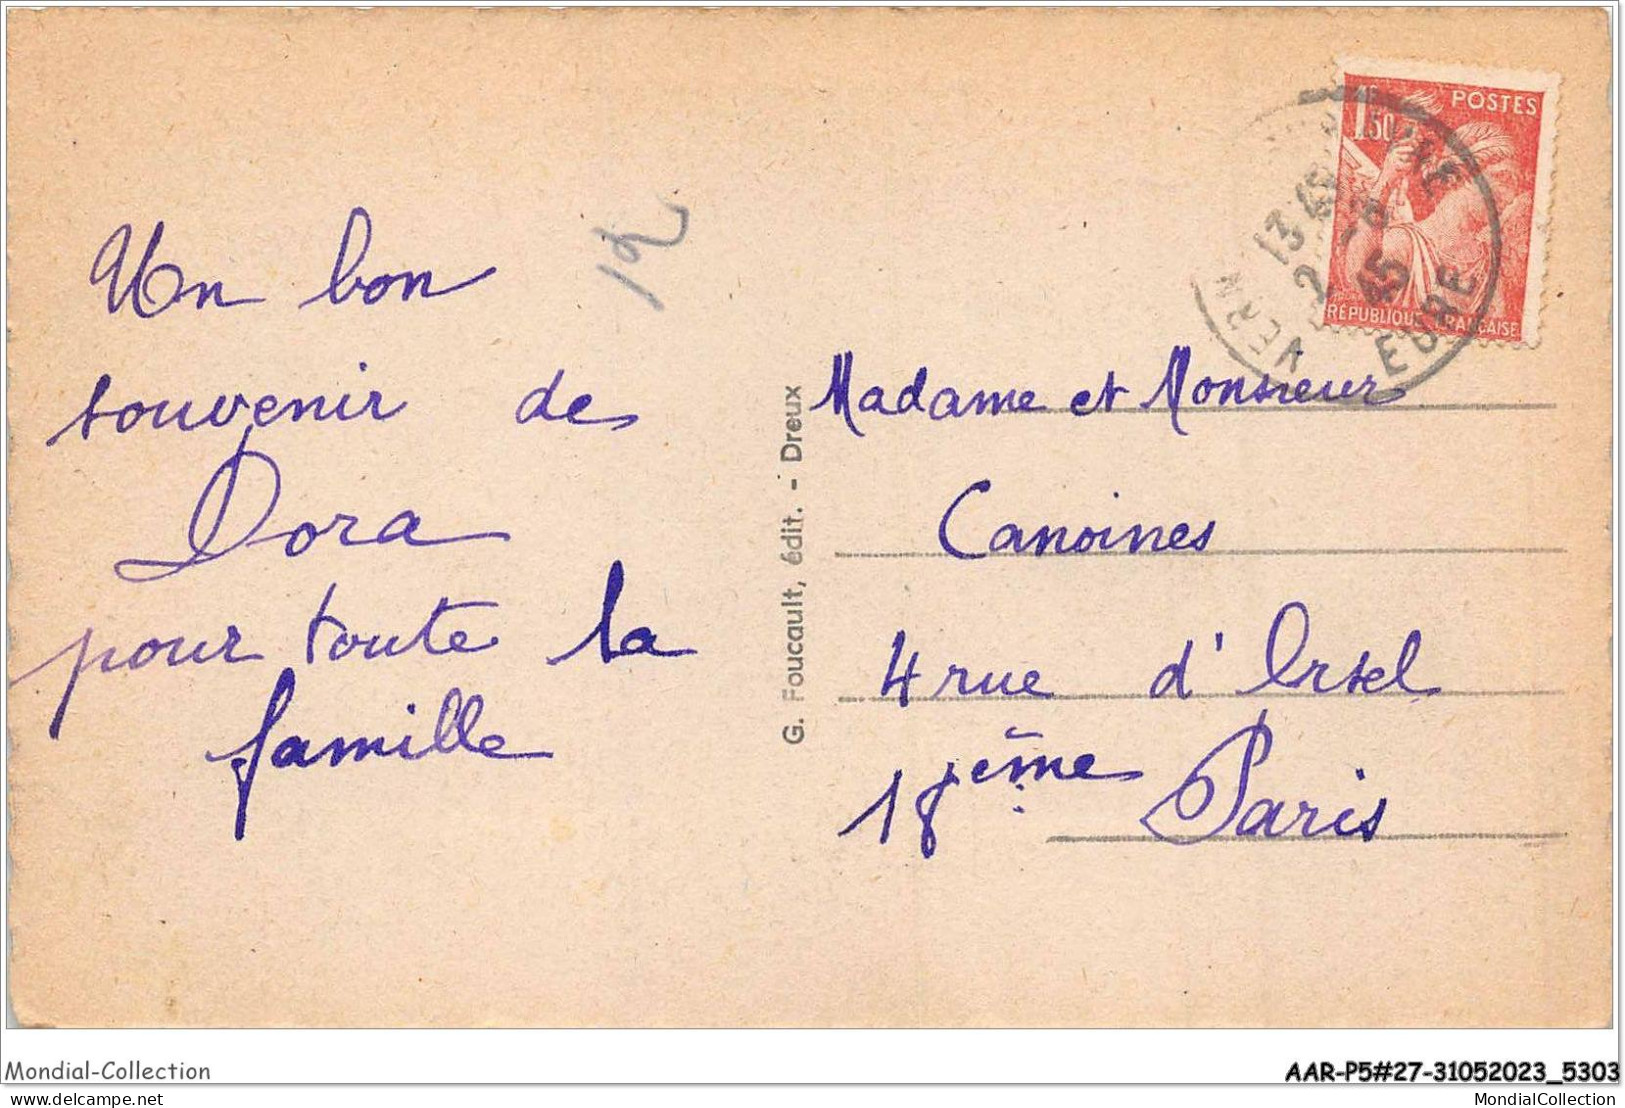 Un bon
souvenir de
Dora
pour toute la
famille
12
G. Foucault, édit. - Dreux
POSTES
1,50
RÉPUBLIQUE FRANÇAISE
13 45
2 -8
45
EURE
Madame et Monsieur
Canoines
4 rue d'Orsel
18ème Paris
Mondial-Collection
AAR-P5#27-31052023_5303
delcampe.net
MondialCollection